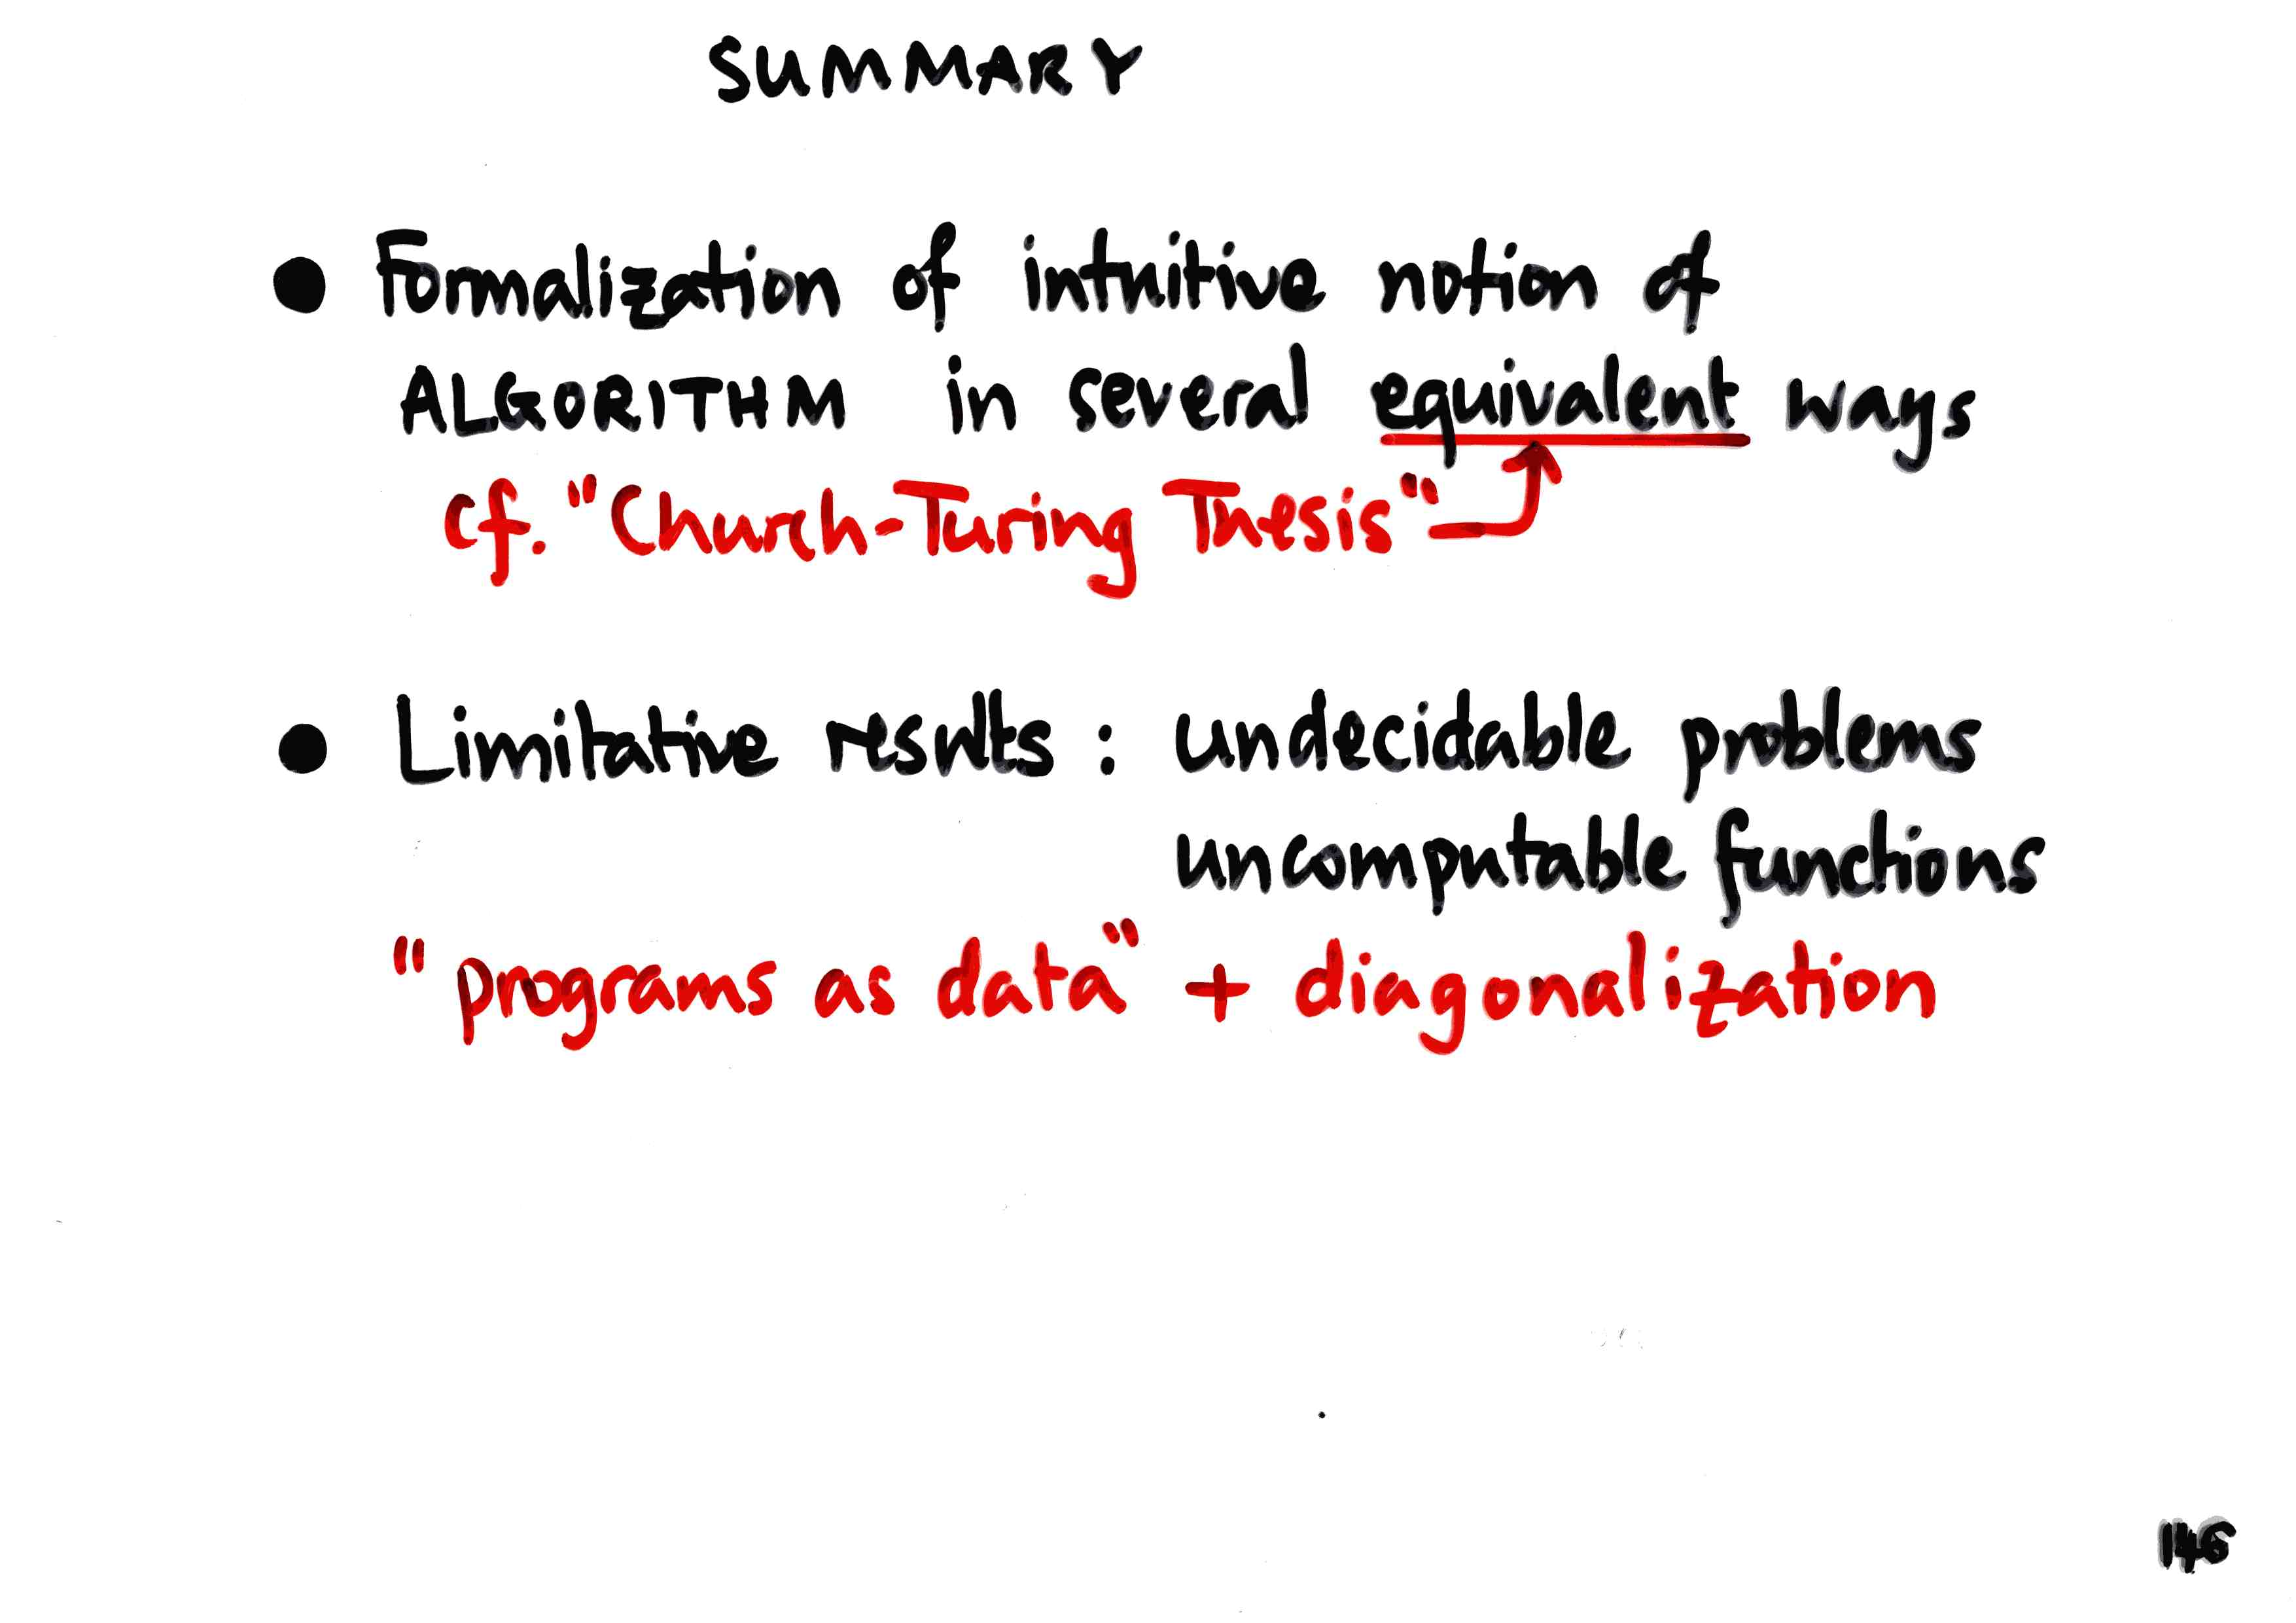 SUMMARY
● Formalization of intuitive notion of
ALGORITHM in several equivalent ways
cf. "Church-Turing Thesis"
● Limitative results : undecidable problems
uncomputable functions
"programs as data" + diagonalization
146